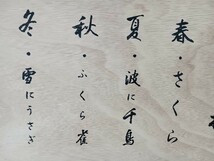 春・さくら
夏・波に千鳥
秋・ふくら雀
冬・雪にうさぎ